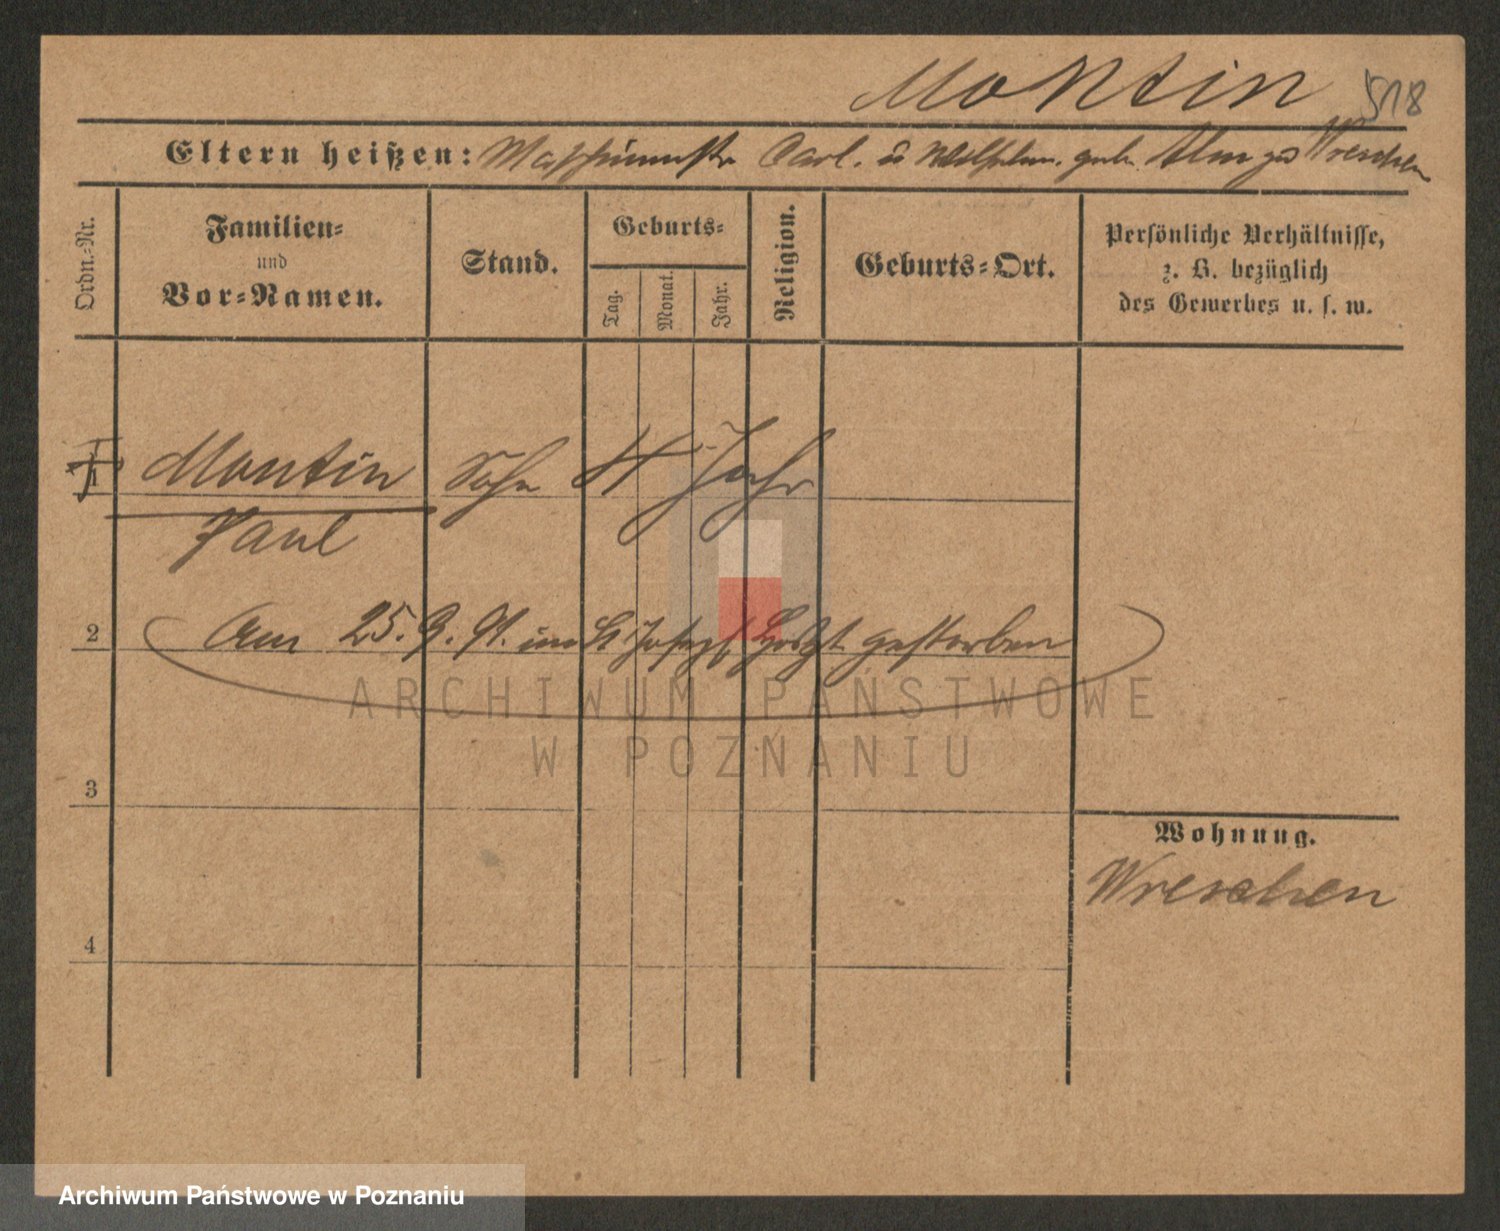 Montin 518
Eltern heißen: Maschinenstr Carl. u Wilhelm. geb. Alm zu Wreschen
Ordn.-Nr.
Familien-
und
Vor-Namen.
Stand.
Geburts-
Tag.
Monat.
Jahr.
Religion.
Geburts-Ort.
Persönliche Verhältnisse,
z. B. bezüglich
des Gewerbes u. s. w.
1 Montin Sohn 4 Jahr
Paul
2 Am 25.9.91. im St Josefs Hospt gestorben
3
Wohnung.
Wreschen
4
ARCHIWUM PAŃSTWOWE
W POZNANIU
Archiwum Państwowe w Poznaniu